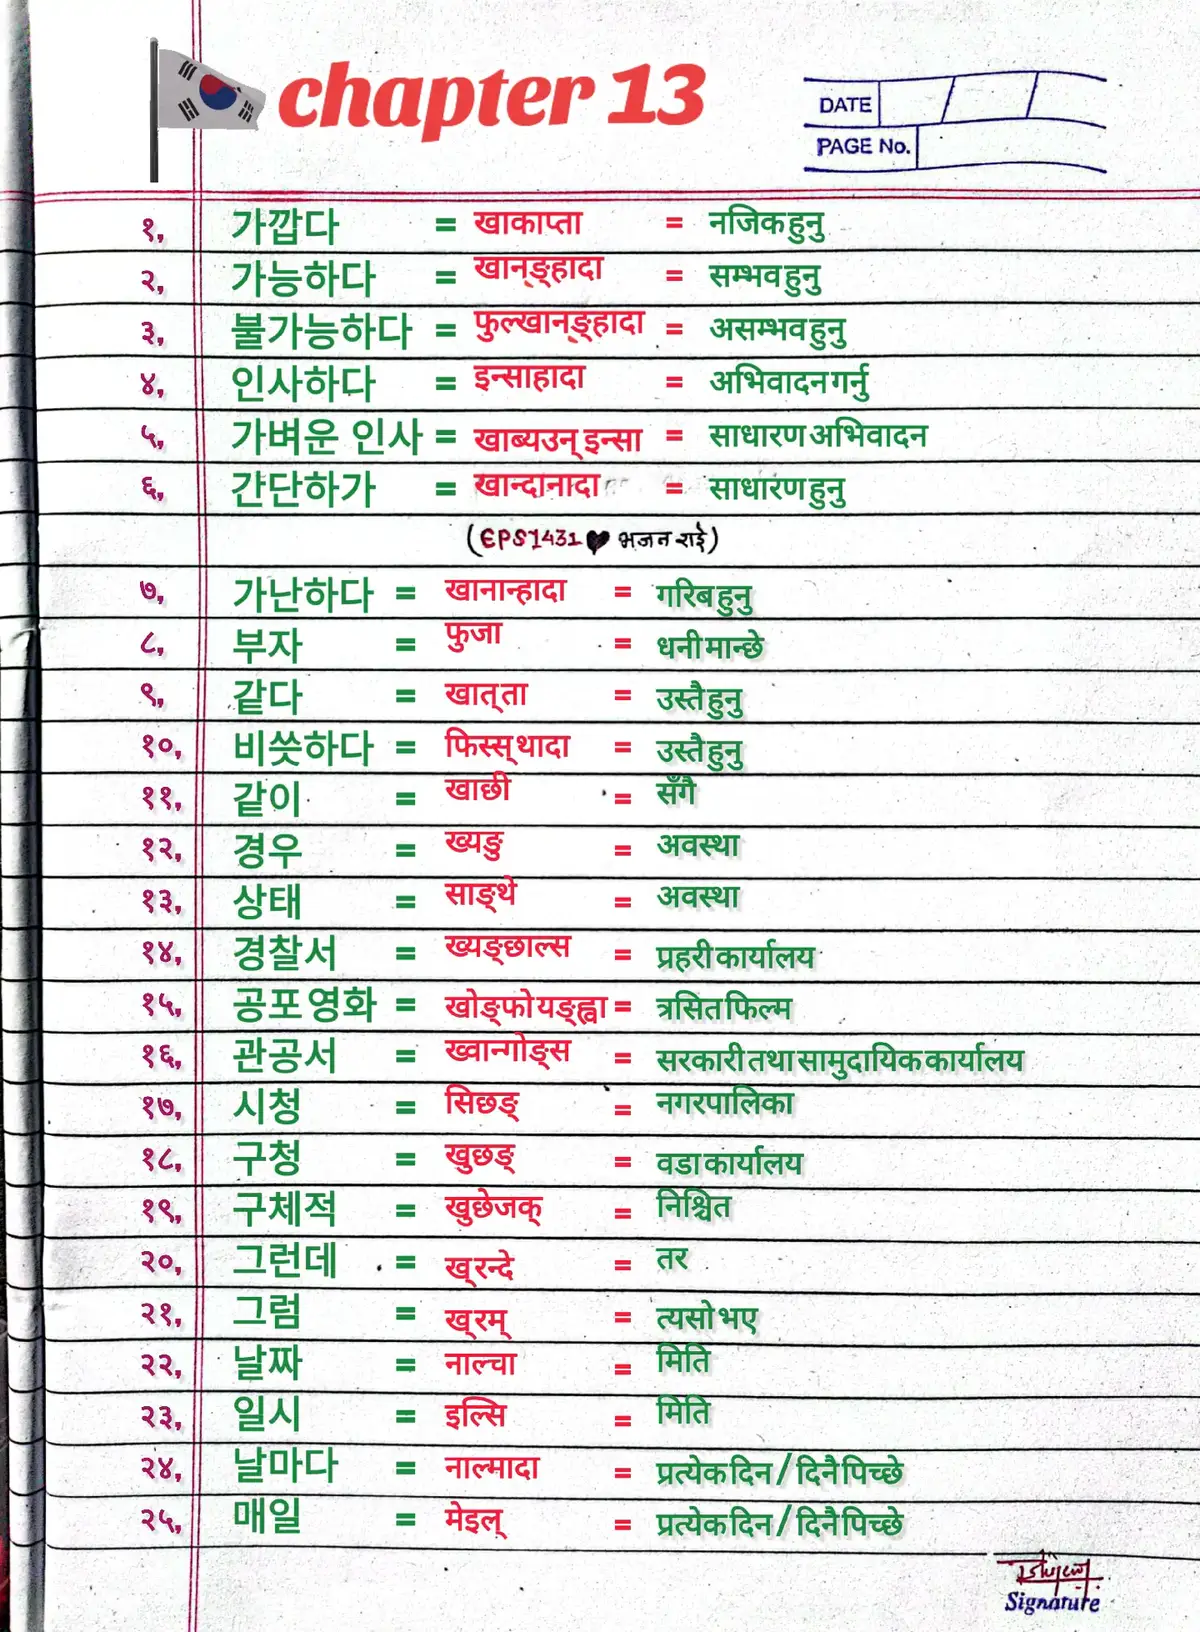 chapter 13
DATE
PAGE No.
१, 가깝다 = खाकाप्ता = नजिक हुनु
२, 가능하다 = खान्ङ्हादा = सम्भव हुनु
३, 불가능하다 = फुल्खानङ्हादा = असम्भव हुनु
४, 인사하다 = इन्साहादा = अभिवादन गर्नु
५, 가벼운 인사 = खाब्यउन् इन्सा = साधारण अभिवादन
६, 간단하가 = खान्दानादा = साधारण हुनु
(EPS1431 ♥ भजन राई)
७, 가난하다 = खानान्हादा = गरिब हुनु
८, 부자 = फुजा = धनी मान्छे
९, 같다 = खात्ता = उस्तै हुनु
१०, 비씃하다 = फिस्स्थादा = उस्तै हुनु
११, 같이 = खाछी = सँगै
१२, 경우 = ख्यङु = अवस्था
१३, 상태 = साङ्थे = अवस्था
१४, 경찰서 = ख्यङ्छाल्स = प्रहरी कार्यालय
१५, 공포 영화 = खोङ्फो यङ्ह्वा = त्रसित फिल्म
१६, 관공서 = ख्वान्गोङ्स = सरकारी तथा सामुदायिक कार्यालय
१७, 시청 = सिछङ् = नगरपालिका
१८, 구청 = खुछङ् = वडा कार्यालय
१९, 구체적 = खुछेजक् = निश्चित
२०, 그런데 = ख्रन्दे = तर
२१, 그럼 = ख्रम् = त्यसो भए
२२, 날짜 = नाल्चा = मिति
२३, 일시 = इल्सि = मिति
२४, 날마다 = नाल्मादा = प्रत्येक दिन / दिनै पिच्छे
२५, 매일 = मेइल् = प्रत्येक दिन / दिनै पिच्छे
Signature